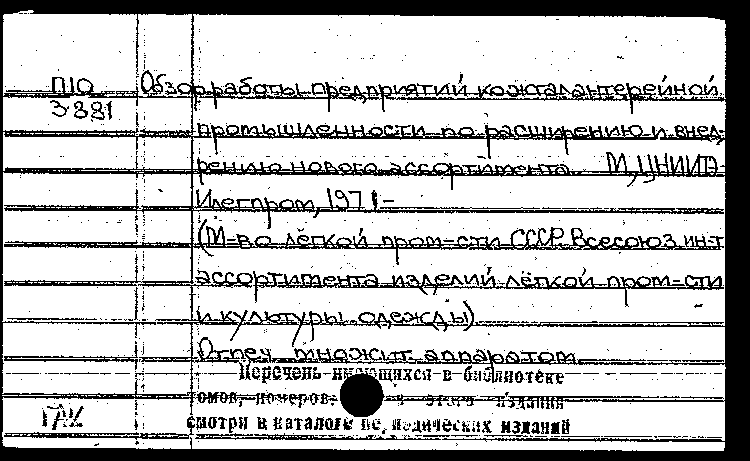 П10 Обзор работы предприятий кожгалантерейной
3881
промышленности по расширению и внед-
рению нового ассортимента. М, ЦНИИТЭ-
Илегпром, 1971-
(М-во лёгкой пром-сти СССР. Всесоюз. ин-т
ассортимента изделий лёгкой пром-сти
и культуры одежды)
Отпеч. множит. аппаратом
Перечень имеющихся в библиотеке
томов, номеров, этого издания
смотри в каталоге периодических изданий